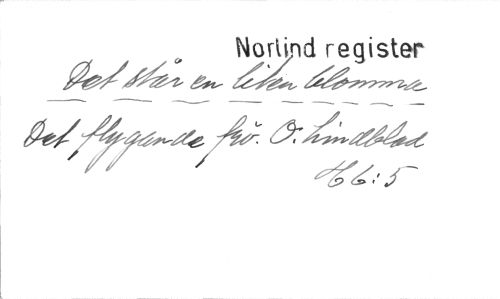 Norlind register
Det står en liten blomma
Det flygande frö. O. Lindblad
H 6:5